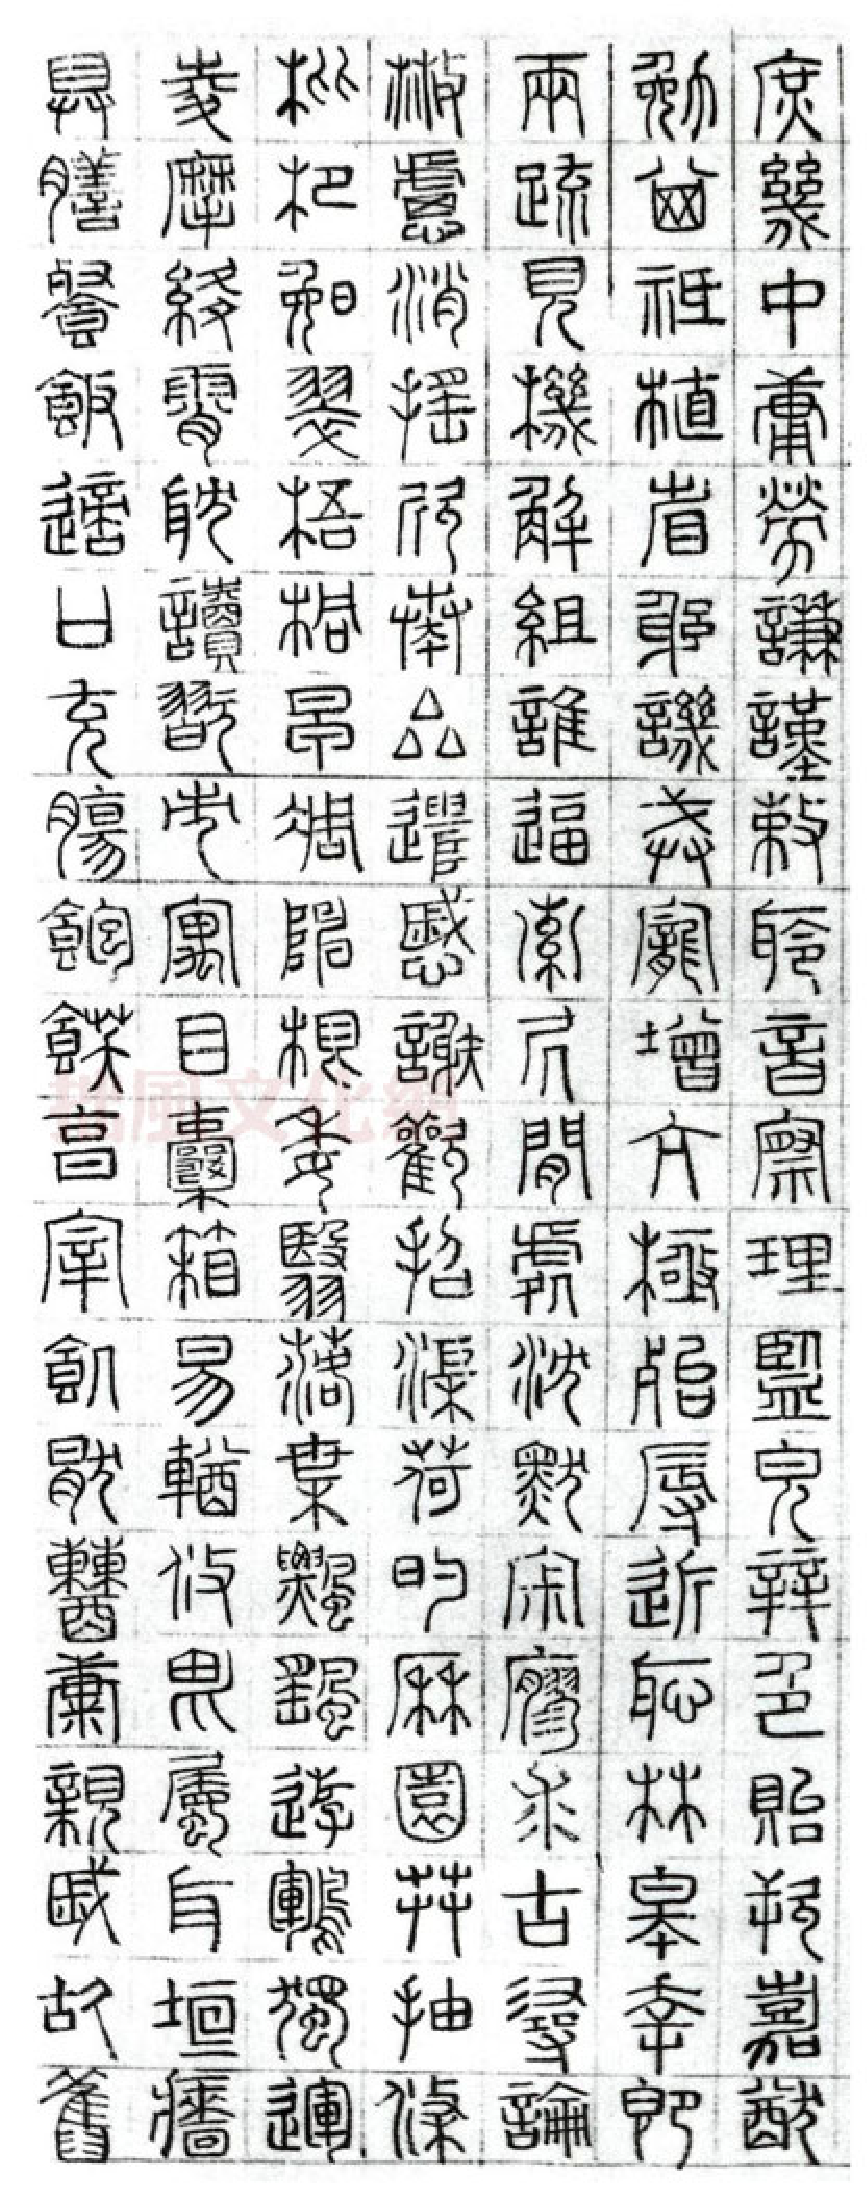 庶幾中庸勞謙謹敕聆音察理監皃辡色貽厥嘉猷
勉其祗植省躬譏誡寵增亢極殆辱近恥林皋幸即
兩疏見機解組誰逼索居閒處沈默寂寥求古尋論
散慮消搖欣奏厽遣慼謝歡招渠荷的歷園莽抽條
枇杷晚翠梧桐早凋陳根委翳落葉飄颻遊鵾獨運
凌摩絳霄耽讀翫市寓目囊箱易輶攸畏屬耳垣牆
具膳餐飯適口充腸飽飫亯宰飢厭糟糠親戚故舊
風文化網